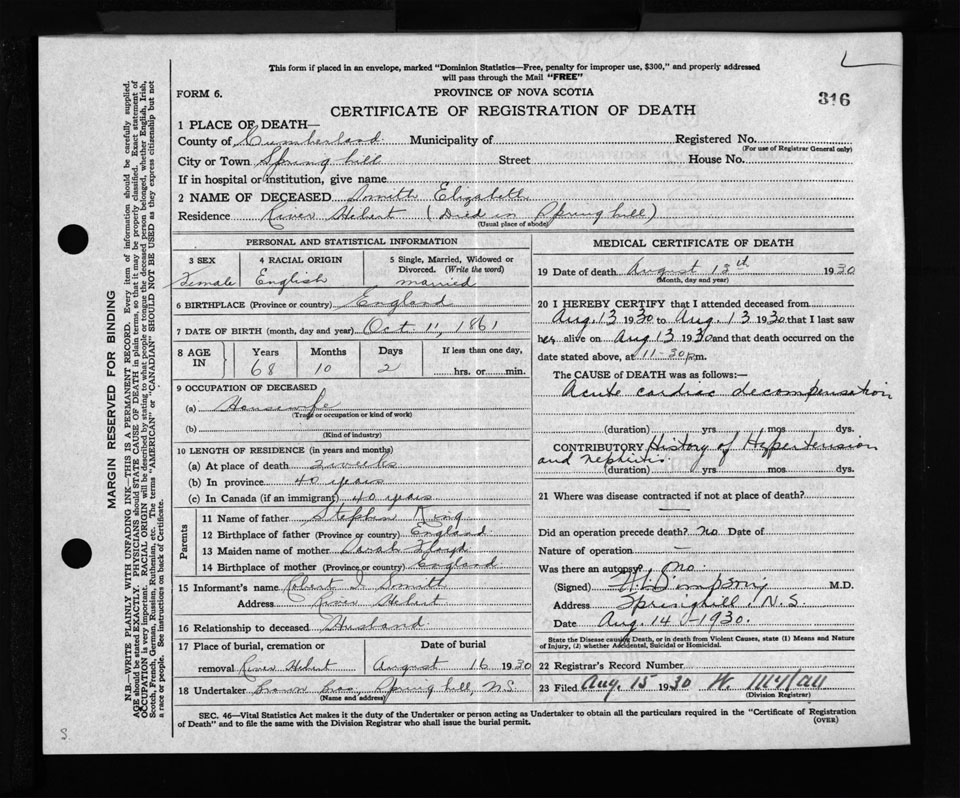 This form if placed in an envelope, marked "Dominion Statistics—Free, penalty for improper use, $300," and properly addressed
will pass through the Mail "FREE"
FORM 6.
PROVINCE OF NOVA SCOTIA
316
CERTIFICATE OF REGISTRATION OF DEATH
1 PLACE OF DEATH—
County of Cumberland Municipality of Registered No.
(For use of Registrar General only)
City or Town Spring hill Street House No.
If in hospital or institution, give name
2 NAME OF DECEASED Smith Elizabeth
Residence River Hebert (Died in Spring hill)
(Usual place of abode)
PERSONAL AND STATISTICAL INFORMATION
3 SEX 4 RACIAL ORIGIN 5 Single, Married, Widowed or
Divorced. (Write the word)
Female English married
6 BIRTHPLACE (Province or country) England
7 DATE OF BIRTH (month, day and year) Oct 11, 1861
8 AGE IN Years Months Days If less than one day,
68 10 2 hrs. or min.
9 OCCUPATION OF DECEASED
(a) Housewife
(Trade or occupation or kind of work)
(b)
(Kind of industry)
10 LENGTH OF RESIDENCE (in years and months)
(a) At place of death 2 weeks
(b) In province 40 years
(c) In Canada (if an immigrant) 40 years
Parents
11 Name of father Stephen King
12 Birthplace of father (Province or country) England
13 Maiden name of mother Sarah Floyd
14 Birthplace of mother (Province or country) England
15 Informant's name Robert J. Smith
Address River Hebert
16 Relationship to deceased Husband
17 Place of burial, cremation or Date of burial
removal River Hebert August 16 1930
18 Undertaker Brown Bros, Spring hill, N.S.
(Name and address)
MEDICAL CERTIFICATE OF DEATH
19 Date of death August 13th 1930
(Month, day and year)
20 I HEREBY CERTIFY that I attended deceased from
Aug. 13 1930 to Aug. 13 1930 that I last saw
her alive on Aug 13 1930 and that death occurred on the
date stated above, at 11-30 p.m.
The CAUSE OF DEATH was as follows:—
Acute cardiac decompensation
(duration) yrs. mos. dys.
CONTRIBUTORY History of Hypertension
and nephritis.
(duration) yrs. mos. dys.
21 Where was disease contracted if not at place of death?
—
Did an operation precede death? no Date of
Nature of operation —
Was there an autopsy? no.
(Signed) M.D.
Address Springhill, N.S.
Date Aug. 14 - 1930.
State the Disease causing Death, or in death from Violent Causes, state (1) Means and Nature
of Injury, (2) whether Accidental, Suicidal or Homicidal.
22 Registrar's Record Number
23 Filed Aug. 15 1930 W.
(Division Registrar)
SEC. 46—Vital Statistics Act makes it the duty of the Undertaker or person acting as Undertaker to obtain all the particulars required in the "Certificate of Registration
of Death" and to file the same with the Division Registrar who shall issue the burial permit.
(OVER)
MARGIN RESERVED FOR BINDING
N.B.—WRITE PLAINLY WITH UNFADING INK—THIS IS A PERMANENT RECORD. Every item of information should be carefully supplied.
AGE should be stated EXACTLY. PHYSICIANS should STATE CAUSE OF DEATH in plain terms, so that it may be properly classified. Exact statement of
OCCUPATION is very important. RACIAL ORIGIN will be described by stating to what people or tongue the deceased person belonged, whether English, Irish,
Scotch, French, German, Russian, Ruthenian, etc. The terms "AMERICAN" or "CANADIAN" SHOULD NOT BE USED as they express citizenship but not
a race or people. See instructions on back of Certificate.
S